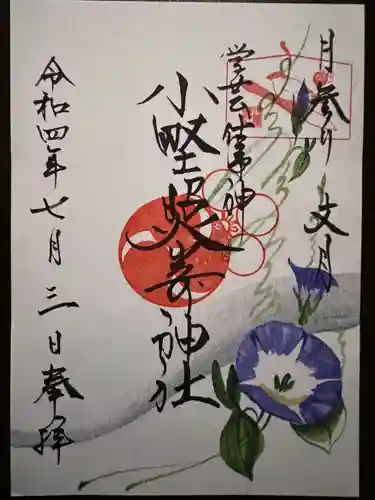 月参り 文月
学芸仕事神
小野照崎神社
令和四年七月三日奉拝